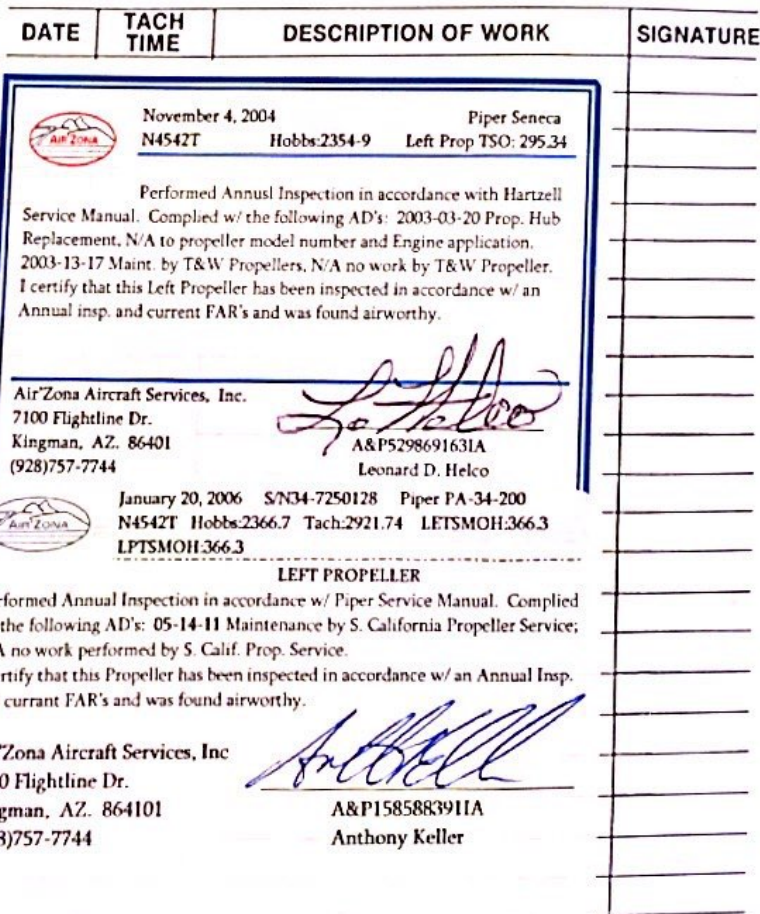 DATE TACH TIME DESCRIPTION OF WORK SIGNATURE
AIR'ZONA
November 4, 2004 Piper Seneca
N4542T Hobbs:2354-9 Left Prop TSO: 295.34
Performed Annusl Inspection in accordance with Hartzell
Service Manual. Complied w/ the following AD's: 2003-03-20 Prop. Hub
Replacement, N/A to propeller model number and Engine application.
2003-13-17 Maint. by T&W Propellers, N/A no work by T&W Propeller.
I certify that this Left Propeller has been inspected in accordance w/ an
Annual insp. and current FAR's and was found airworthy.
Air'Zona Aircraft Services, Inc.
7100 Flightline Dr.
Kingman, AZ. 86401
(928)757-7744
A&P529869163IA
Leonard D. Helco
AIR'ZONA
January 20, 2006 S/N34-7250128 Piper PA-34-200
N4542T Hobbs:2366.7 Tach:2921.74 LETSMOH:366.3
LPTSMOH:366.3
LEFT PROPELLER
formed Annual Inspection in accordance w/ Piper Service Manual. Complied
the following AD's: 05-14-11 Maintenance by S. California Propeller Service;
A no work performed by S. Calif. Prop. Service.
rtify that this Propeller has been inspected in accordance w/ an Annual Insp.
currant FAR's and was found airworthy.
'Zona Aircraft Services, Inc
0 Flightline Dr.
gman, AZ. 864101
8)757-7744
A&P158588391IA
Anthony Keller